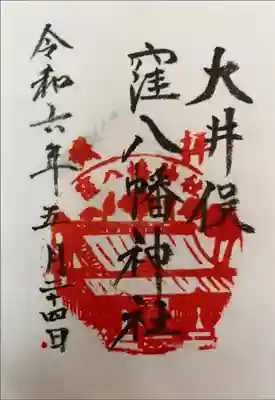 大井俣
窪八幡神社
令和六年五月二十四日